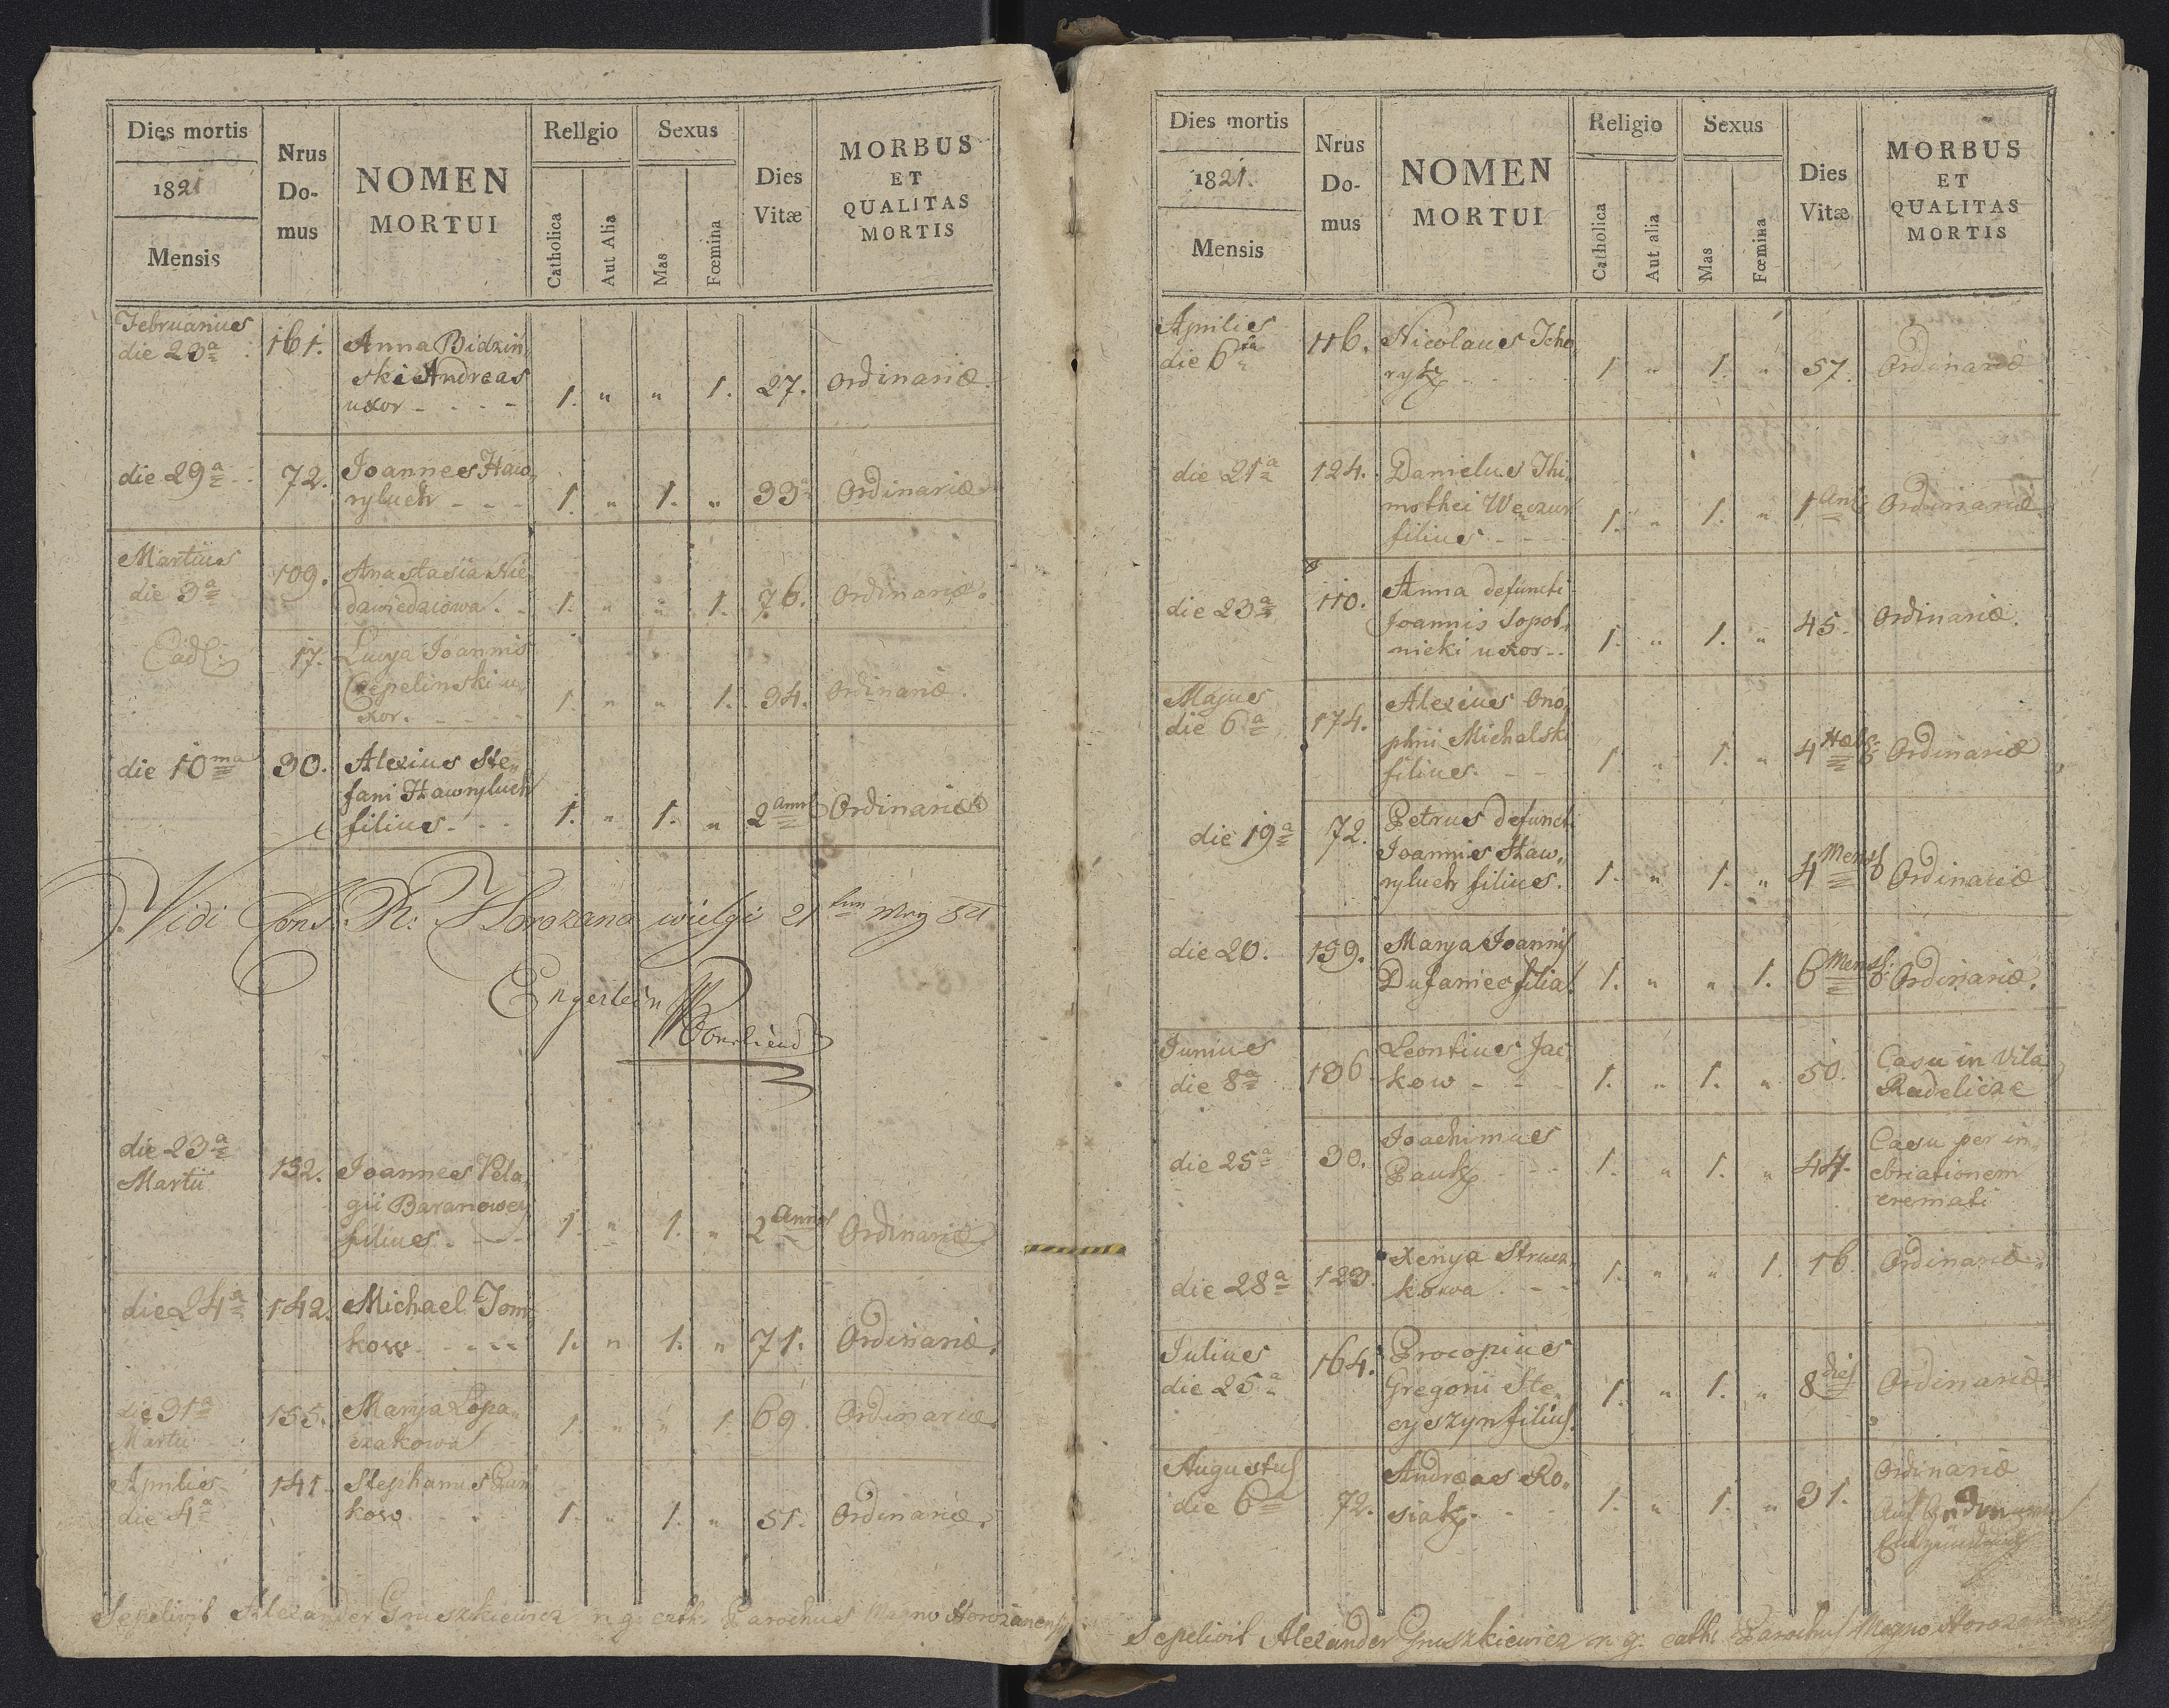 Dies mortis
1821
Mensis
Nrus
Do-
mus
NOMEN
MORTUI
Rellgio
Catholica
Aut Alia
Sexus
Mas
Fœmina
Dies
Vitæ
MORBUS
ET
QUALITAS
MORTIS
Februarius
die 23ª 161. Anna Bidzin„
ski Andreas
uxor - - - - 1. " " 1. 27. Ordinariæ.
die 29ª 72. Joannes Haw„
ryluch - - - 1. " 1. " 33 Ordinariæ
Martius
die 3ª 109. Anastasia Nie„
dawiedziowa. - 1. " " 1. 76. Ordinariæ.
Ead: 17. Lucya Joannis
Czepelinski u„
xor. - - - - 1. " " 1. 34. Ordinariæ.
die 10ma 30. Alexius Ste„
fani Hawryluch
filius - - - 1. " 1. " 2 ann Ordinariæ
Vidi Cons. R: Horozana wielgi 21 May 821
Engerlein
die 23ª
Martii 132. Joannes Pela„
gii Baranowcy
filius. - - 1. " 1. " 2 Annos Ordinariæ
die 24ª 142. Michael Jom„
kow - - - - 1. " 1. " 71. Ordinariæ.
die 31ª
Martii 155. Marya Lopa„
czakowa 1. " " 1. 69. Ordinariæ.
Aprilis
die 4ª 141. Stephanus
kow - - 1. " 1. " 51. Ordinariæ.
Sepelivit Alexander Gruszkiewicz r. g. cath. Parochus Magno Horożanensis
Dies mortis
1821.
Mensis
Nrus
Do-
mus
NOMEN
MORTUI
Religio
Catholica
Aut alia
Sexus
Mas
Fœmina
Dies
Vitæ
MORBUS
ET
QUALITAS
MORTIS
Aprilis
die 6ta 116. Nicolaus Icho„
ryk - - - - 1. " 1. " 57. Ordinariæ
die 21ª 124. Danielus Thi„
mothei Weczur
filius - - - 1. " 1. " 1 An: Ordinariæ.
die 23ª 110. Anna defuncti
Joannis Sopot„
nicki uxor - - 1. " 1. " 45. Ordinariæ.
Majus
die 6ª 174. Alexius Ono„
phrii Michalski
filius. - - 1. " 1. " 4 Ordinariæ
die 19ª 72. Petrus defuncti
Joannis Haw„
ryluch filius. 1. " 1. " 4 Mens Ordinariæ
die 20. 139. Marya Joannis
Dufaniec filia. 1. " " 1. 6 Mens: Ordinariæ.
Junius
die 8ª 136 Leontius Jac„
kow - - - 1. " 1. " 50. Casu in Vila
Radelicze
die 25ª 30. Joachimus
Pauk - - - 1. " 1. " 44. Casu per in„
ebriationem
cremati
die 28ª 123. Xenya Strucz„
kowa. - - 1. " " 1. 16. Ordinariæ.
Julius
die 25ª 164. Procopius
Gregorii Ste„
cyszyn filius. 1. " 1. " 8 dies Ordinariæ.
Augustus
die 6ª 72. Andreas Ko„
siak. - - 1. " 1. " 31. Ordinariæ
Sepelivit Alexander Gruszkiewicz r. g. cath. Parochus Magno